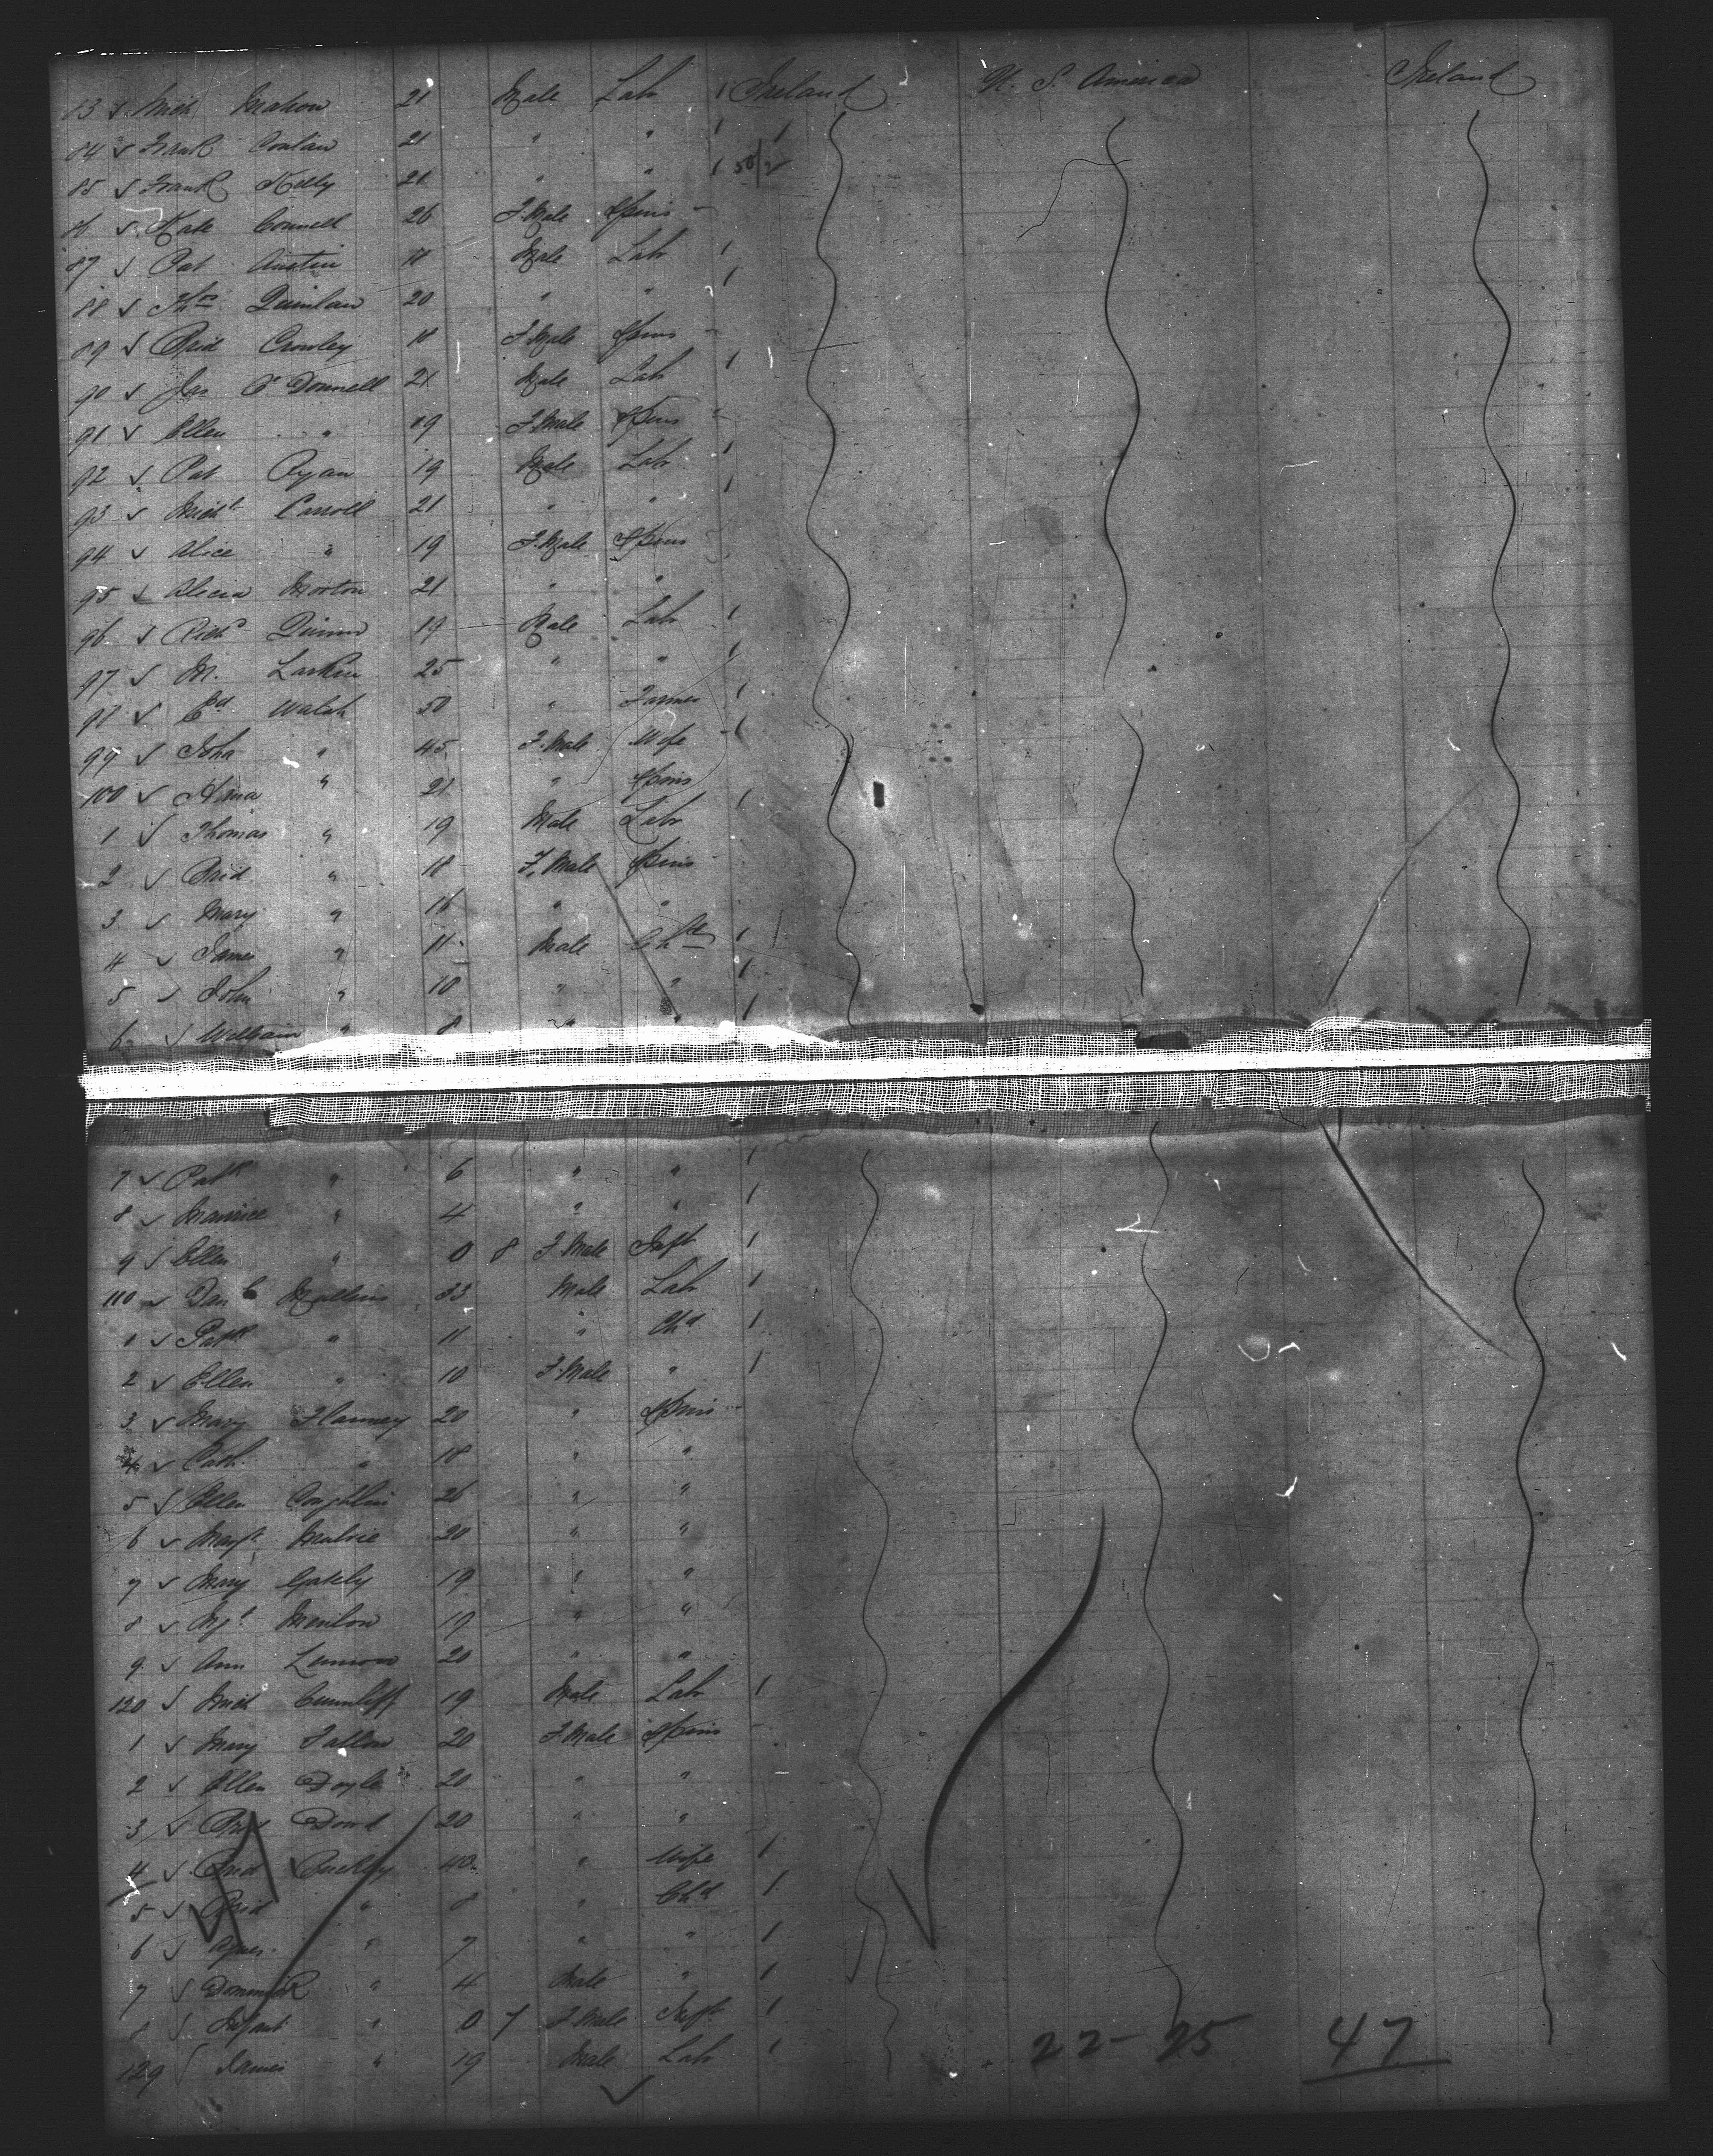 83 ✓ Mich Mahon 21 Male Lab 1 Ireland U. S. America Ireland
84 ✓ Frank Conlan 21 " " 1 1
85 ✓ Frank Kelly 21 " " 1 50/2
86 ✓ Kate Connell 26 F.Male Spins -
87 ✓ Pat Austin 18 Male Lab 1
88 ✓ Thos Quinlan 20 " " 1
89 ✓ Brid Crowley 18 F.Male Spins -
90 ✓ Jas O'Donnell 21 Male Lab 1
91 ✓ Ellen " 19 F.Male Spins -
92 ✓ Pat Ryan 19 Male Lab 1
93 ✓ Michl Carroll 21 " " 1
94 ✓ Alice " 19 F.Male Spins -
95 ✓ Alicia Morton 21 " "
96 ✓ Richd Quinn 19 Male Lab 1
97 ✓ M. Larkin 25 " " 1
98 ✓ Ed Walsh 50 " Farmer 1
99 ✓ Joha " 45 F.Male Wife - 1
100 ✓ " 21 " Spins
1 ✓ Thomas " 19 Male Lab 1
2 ✓ Brid " 18 F.Male Spins -
3 ✓ Mary " 16 " "
4 ✓ James " 11 Male Chd 1
5 ✓ John " 10 " " 1
6 ✓ William " 8 " 1
7 ✓ Patk " 6 " " 1
8 ✓ Maurice " 4 " " 1
9 ✓ Ellen " 0 8 F.Male Inft 1
110 ✓ Dan C Mullins 33 Male Lab 1
1 ✓ Patk " 11 " Chd 1
2 ✓ Ellen " 10 F.Male " 1
3 ✓ Mary Flanney 20 " Spins -
4 ✓ Cath. " 18 " "
5 ✓ Ellen Coughlin 26 " "
6 ✓ Margt 20 " "
7 ✓ Mary Gately 19 " "
8 ✓ Mgt 19 " "
9 ✓ Ann Lennon 20 " "
120 ✓ Mich Cunniff 19 Male Lab 1
1 ✓ Mary Fallon 20 F.Male Spins -
2 ✓ Ellen Doyle 20 " "
3 ✓ Brid Dowd 20 " "
4 ✓ Brid Buckley 40 " Wife 1
5 ✓ Brid " 8 " Chd 1
6 ✓ Agnes " 7 " " 1
7 ✓ Dominick " 4 Male " 1
8 ✓ Infant " 0 7 F.Male Inft 1
129 James " 19 Male Lab 1
22-25 47